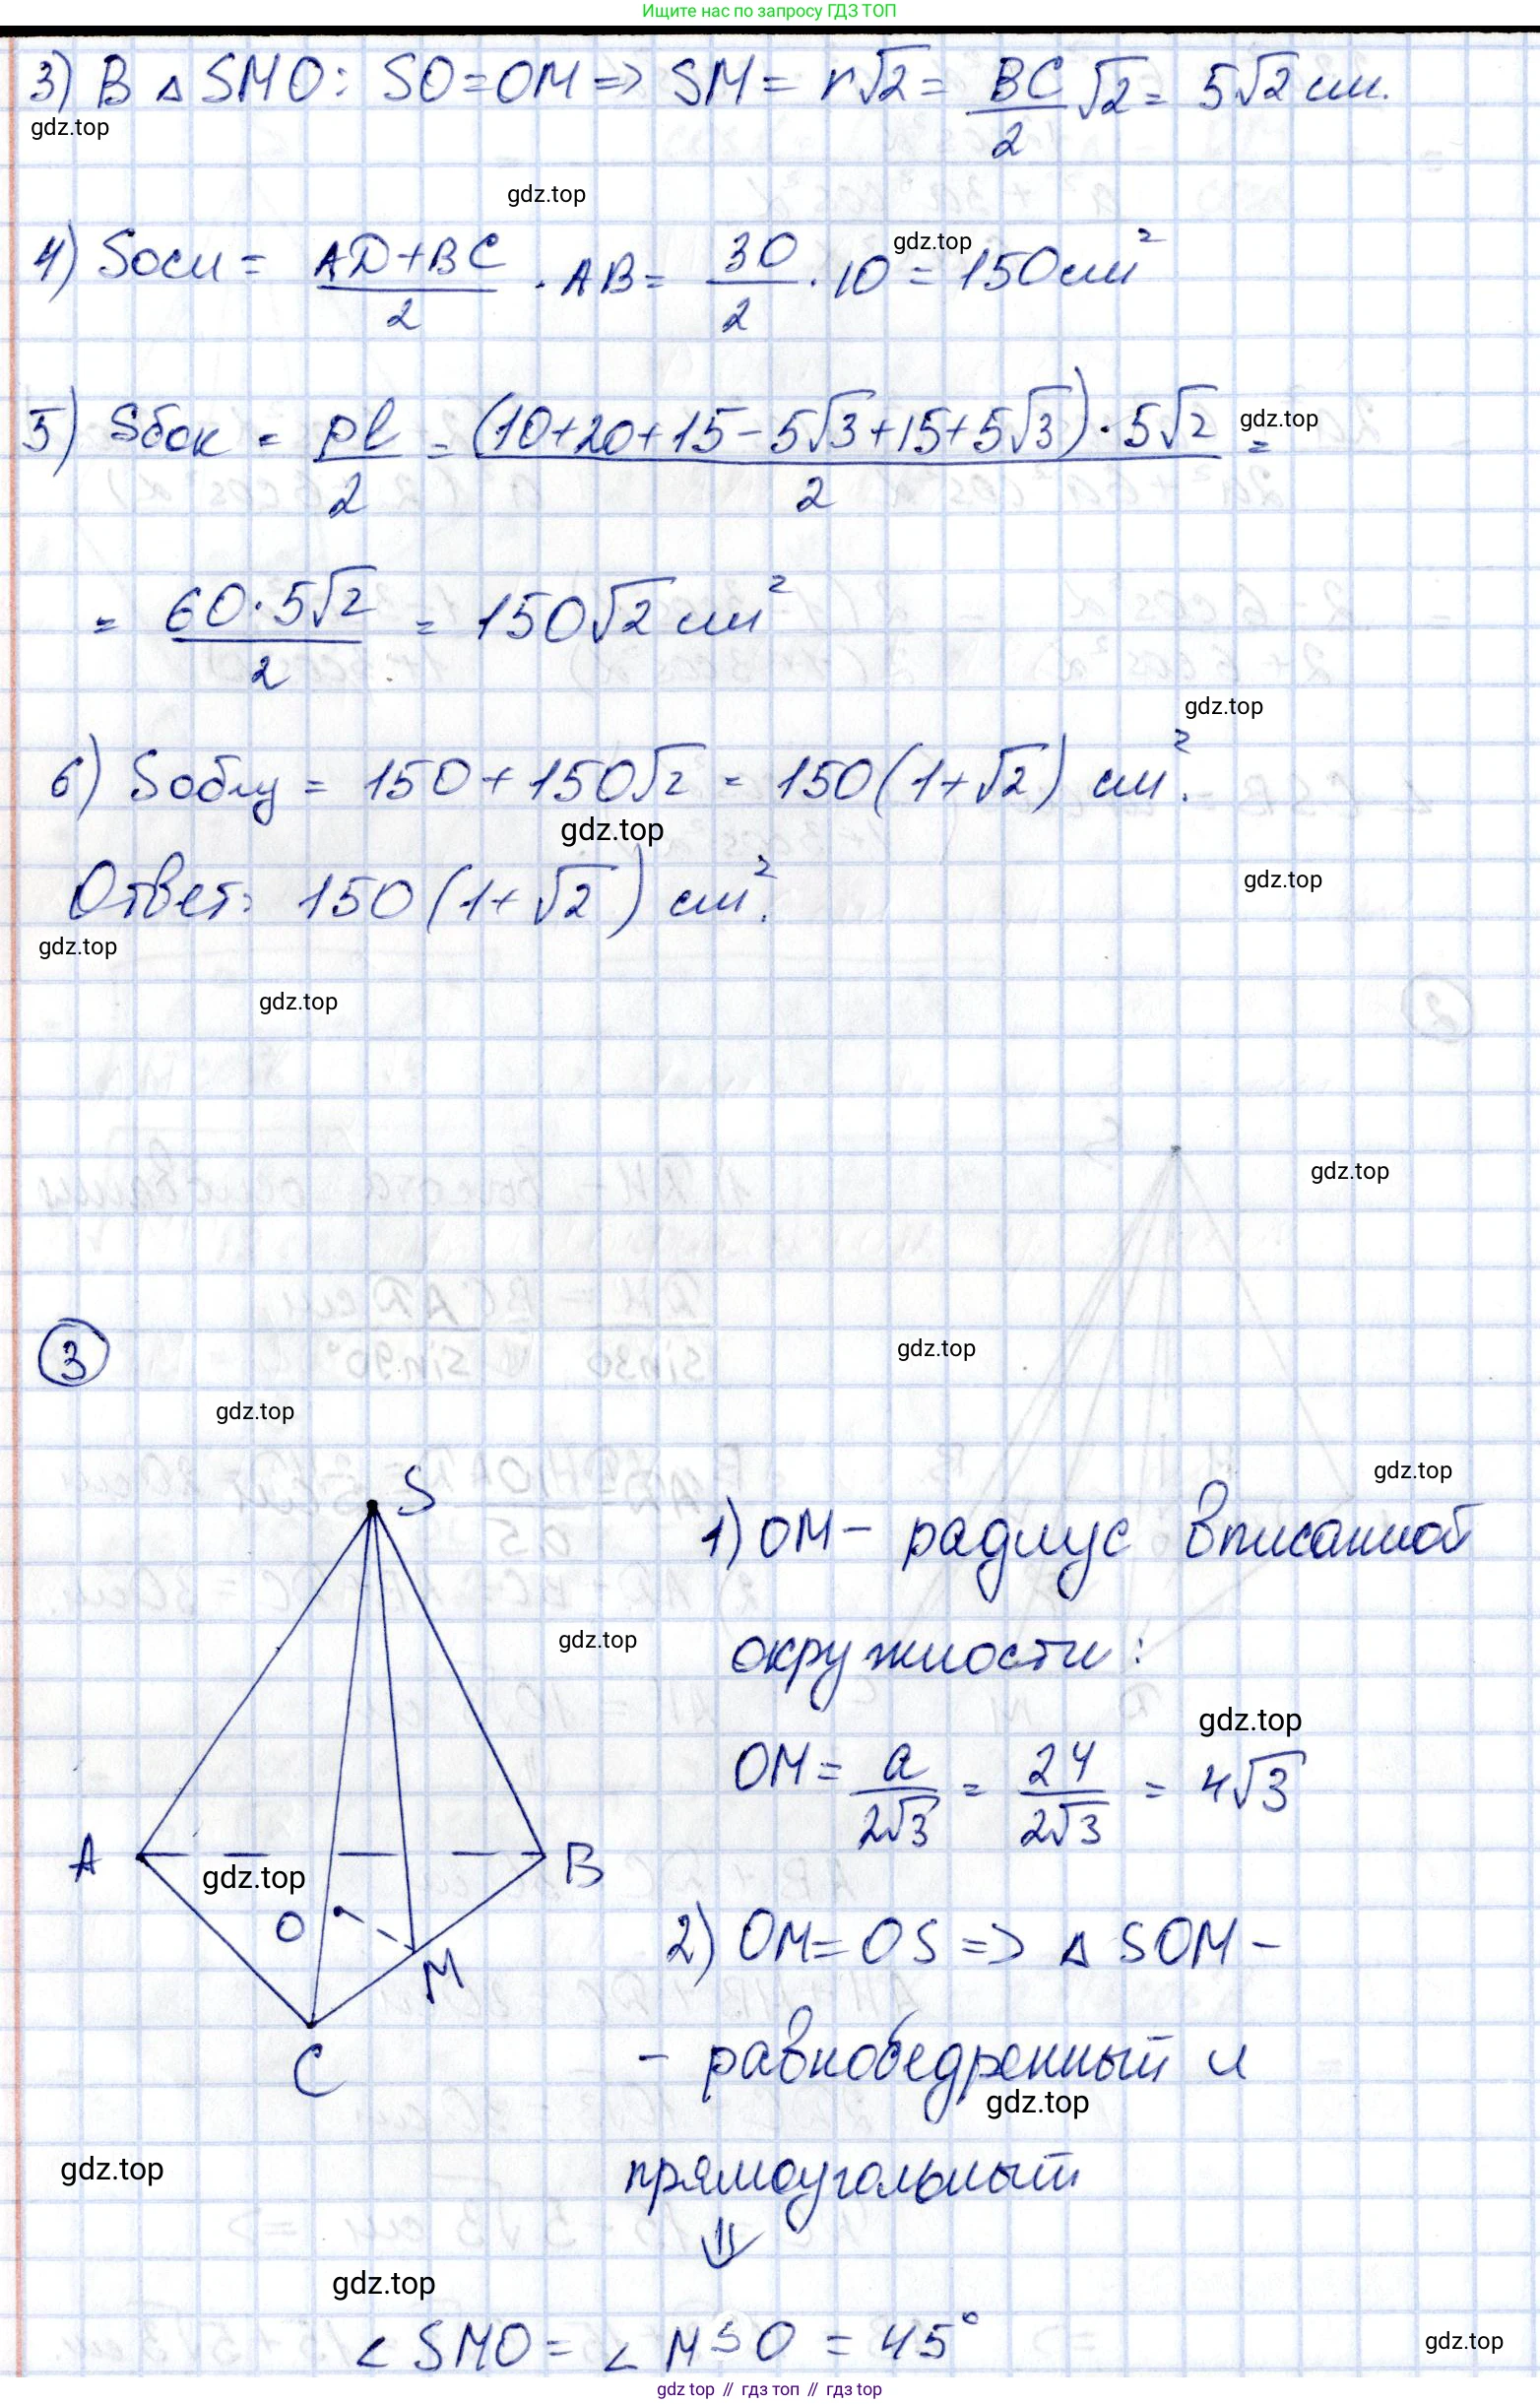 Ищите нас по запросу ГДЗ ТОП
3) В △ SMO: SO = OM => SM = r√2 = BC/2 √2 = 5√2 см.
gdz.top
gdz.top
4) Sосн = (AD+BC)/2 · AB = 30/2 · 10 = 150 см²
gdz.top
5) Sбок = pl/2 = ((10+20+15-5√3+15+5√3)·5√2)/2 =
gdz.top
= (60·5√2)/2 = 150√2 см²
gdz.top
6) Sобщ = 150 + 150√2 = 150(1+√2) см².
gdz.top
Ответ: 150(1+√2) см².
gdz.top
gdz.top
gdz.top
gdz.top
3
gdz.top
gdz.top
gdz.top
S
1) OM - радиус вписанной
gdz.top
окружности:
gdz.top
OM = a/2√3 = 24/2√3 = 4√3
A
B
gdz.top
O
M
C
2) OM = OS => △ SOM -
- равнобедренный и
gdz.top
gdz.top
прямоугольный
⇓
gdz.top
∠ SMO = ∠ MSO = 45°
gdz.top
gdz top // гдз топ // гдз top